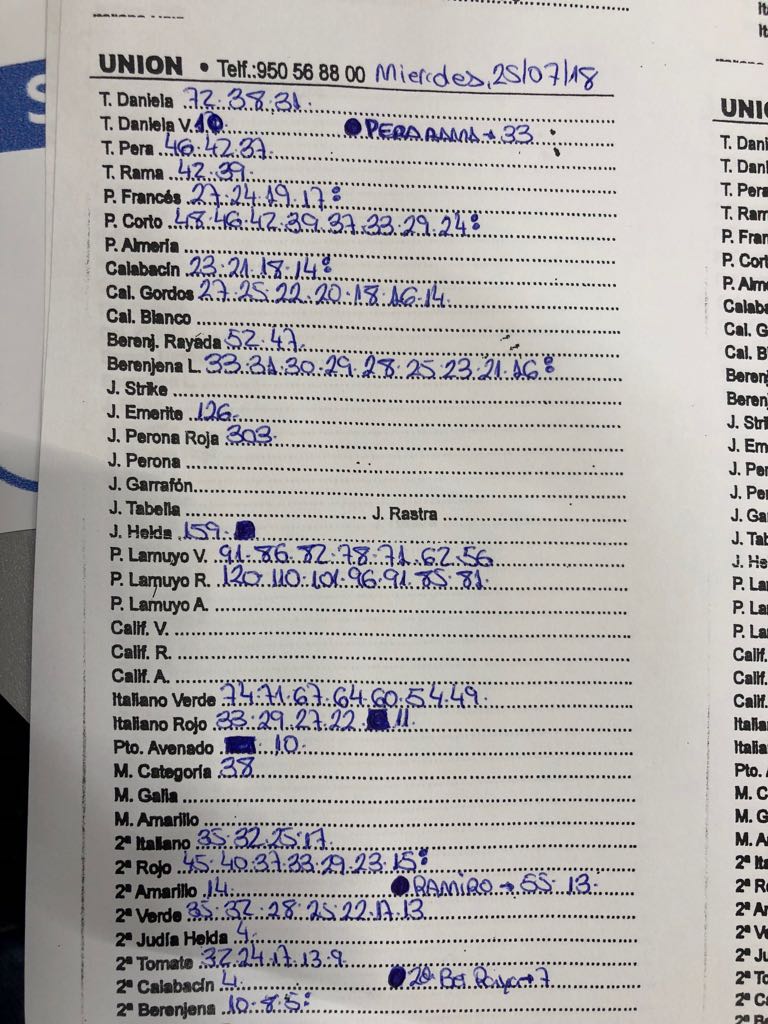 UNION • Telf.:950 56 88 00 Miercoles, 25/07/18
T. Daniela 72.38.31.
T. Daniela V. 10 PERA RAMA → 33
T. Pera 46.42.37.
T. Rama 42.39.
P. Francés 27.24.19.17:
P. Corto 48.46.42.39.37.33.29.24:
P. Almería
Calabacín 23.21.18.14:
Cal. Gordos 27.25.22.20.18.16.14.
Cal. Blanco
Berenj. Rayada 52.47.
Berenjena L. 33.31.30.29.28.25.23.21.16:
J. Strike
J. Emerite 126.
J. Perona Roja 303.
J. Perona
J. Garrafón
J. Tabella J. Rastra
J. Helda 159.
P. Lamuyo V. 91.86.82.78.71.62.56
P. Lamuyo R. 120.110.101.96.91.85.81.
P. Lamuyo A.
Calif. V.
Calif. R.
Calif. A.
Italiano Verde 74.71.67.64.60.54.49.
Italiano Rojo 33.29.27.22 11.
Pto. Avenado 10.
M. Categoría 38
M. Galia
M. Amarillo
2ª Italiano 35.32.25.17.
2ª Rojo 45.40.37.33.29.23.15:
2ª Amarillo 14. RAMIRO → 55.13.
2ª Verde 35.32.28.25.22.17.13
2ª Judía Helda 4.
2ª Tomate 32.24.17.13.9.
2ª Calabacín 4. → 7
2ª Berenjena 10.8.5:
UNI
T. Dani
T. Dani
T. Pera
T. Ram
P. Fran
P. Cort
P. Alme
Calaba
Cal. G
Cal. B
Berenj
Berenj
J. Stri
J. Em
J. Pe
J. Pe
J. Ga
J. Tab
J. He
P. La
P. La
P. La
Calif.
Calif.
Calif.
Italia
Italia
Pto.
M. C
M. G
M. A
2ª Ita
2ª R
2ª A
2ª V
2ª Ju
2ª To
2ª C
2ª B